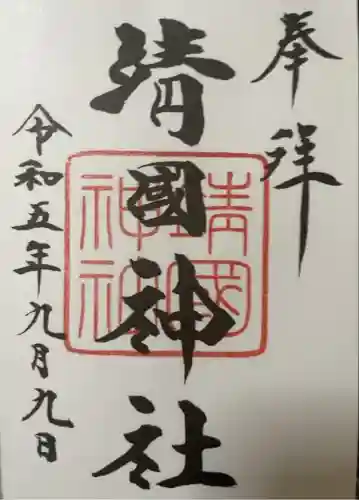 奉拝
靖國神社
靖國
神社
令和五年九月九日